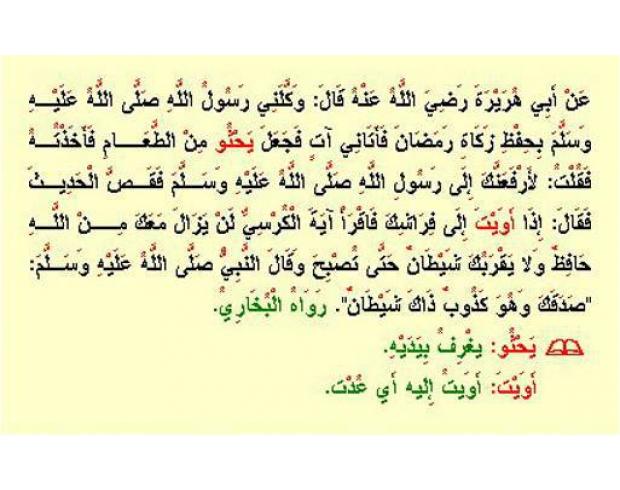 عَنْ أَبِي هُرَيْرَةَ رَضِيَ اللَّهُ عَنْهُ قَالَ: وَكَّلَنِي رَسُولُ اللَّهِ صَلَّى اللَّهُ عَلَيْهِ
وَسَلَّمَ بِحِفْظِ زَكَاةِ رَمَضَانَ فَأَتَانِي آتٍ فَجَعَلَ يَحْثُو مِنْ الطَّعَامِ فَأَخَذْتُهُ
فَقُلْتُ: لَأَرْفَعَنَّكَ إِلَى رَسُولِ اللَّهِ صَلَّى اللَّهُ عَلَيْهِ وَسَلَّمَ فَقَصَّ الْحَدِيثَ
فَقَالَ: إِذَا أَوَيْتَ إِلَى فِرَاشِكَ فَاقْرَأْ آيَةَ الْكُرْسِيِّ لَنْ يَزَالَ مَعَكَ مِنْ اللَّهِ
حَافِظٌ وَلَا يَقْرَبُكَ شَيْطَانٌ حَتَّى تُصْبِحَ وَقَالَ النَّبِيُّ صَلَّى اللَّهُ عَلَيْهِ وَسَلَّمَ:
"صَدَقَكَ وَهُوَ كَذُوبٌ ذَاكَ شَيْطَانٌ". رَوَاهُ الْبُخَارِيُّ.
يَحْثُو: يَغْرِفُ بِيَدَيْهِ.
أَوَيْتَ: أَوَيتُ إِليه أَي عُدْت.